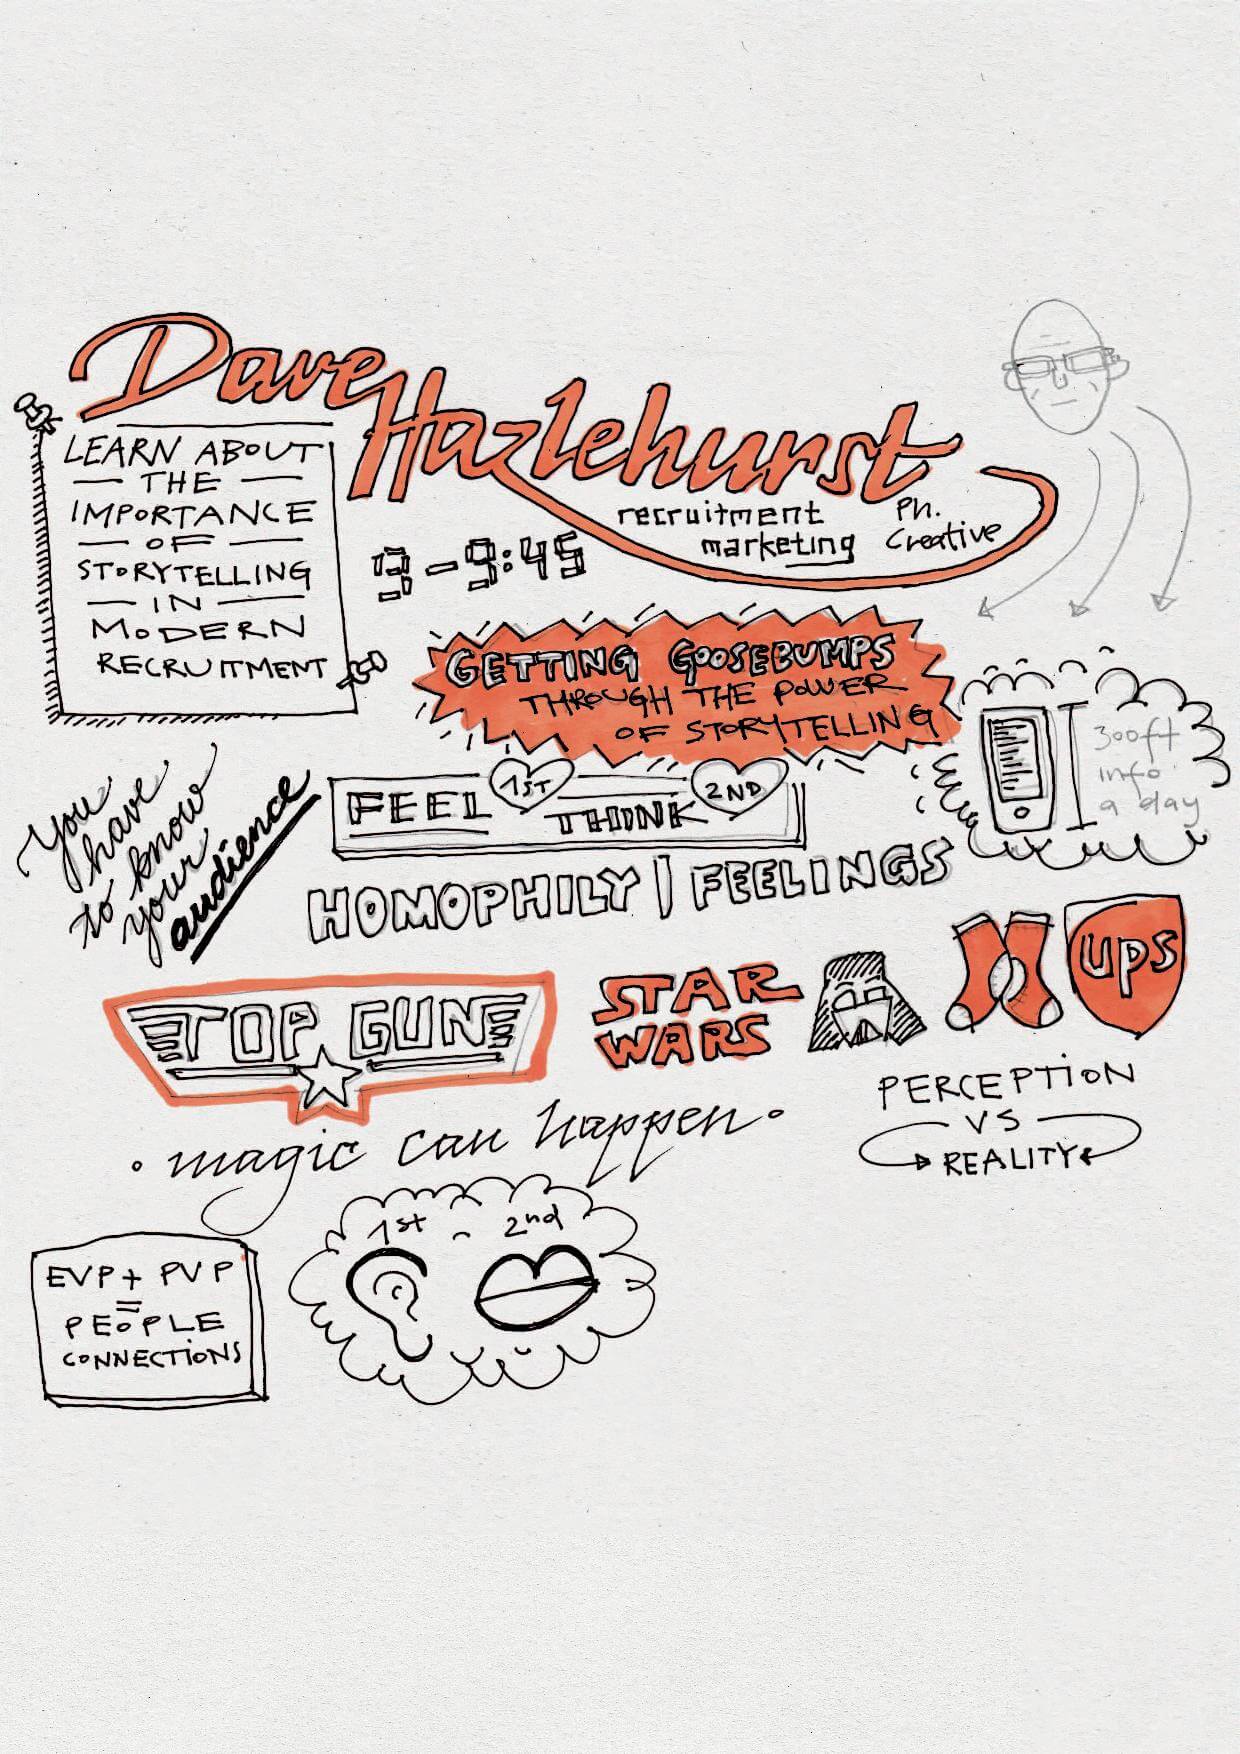 Dave
Hazlehurst
LEARN ABOUT
THE
IMPORTANCE
OF
STORYTELLING
IN
MODERN
RECRUITMENT
recruitment
marketing
Ph.
Creative
9-9:45
GETTING GOOSEBUMPS
THROUGH THE POWER
OF STORYTELLING
300ft
info
a day
You
have
to know
your
audience
FEEL 1ST
THINK 2ND
HOMOPHILY | FEELINGS
TOP GUN
STAR
WARS
ups
PERCEPTION
VS
REALITY
• magic can happen •
EVP + PVP
=
PEOPLE
CONNECTIONS
1st - 2nd